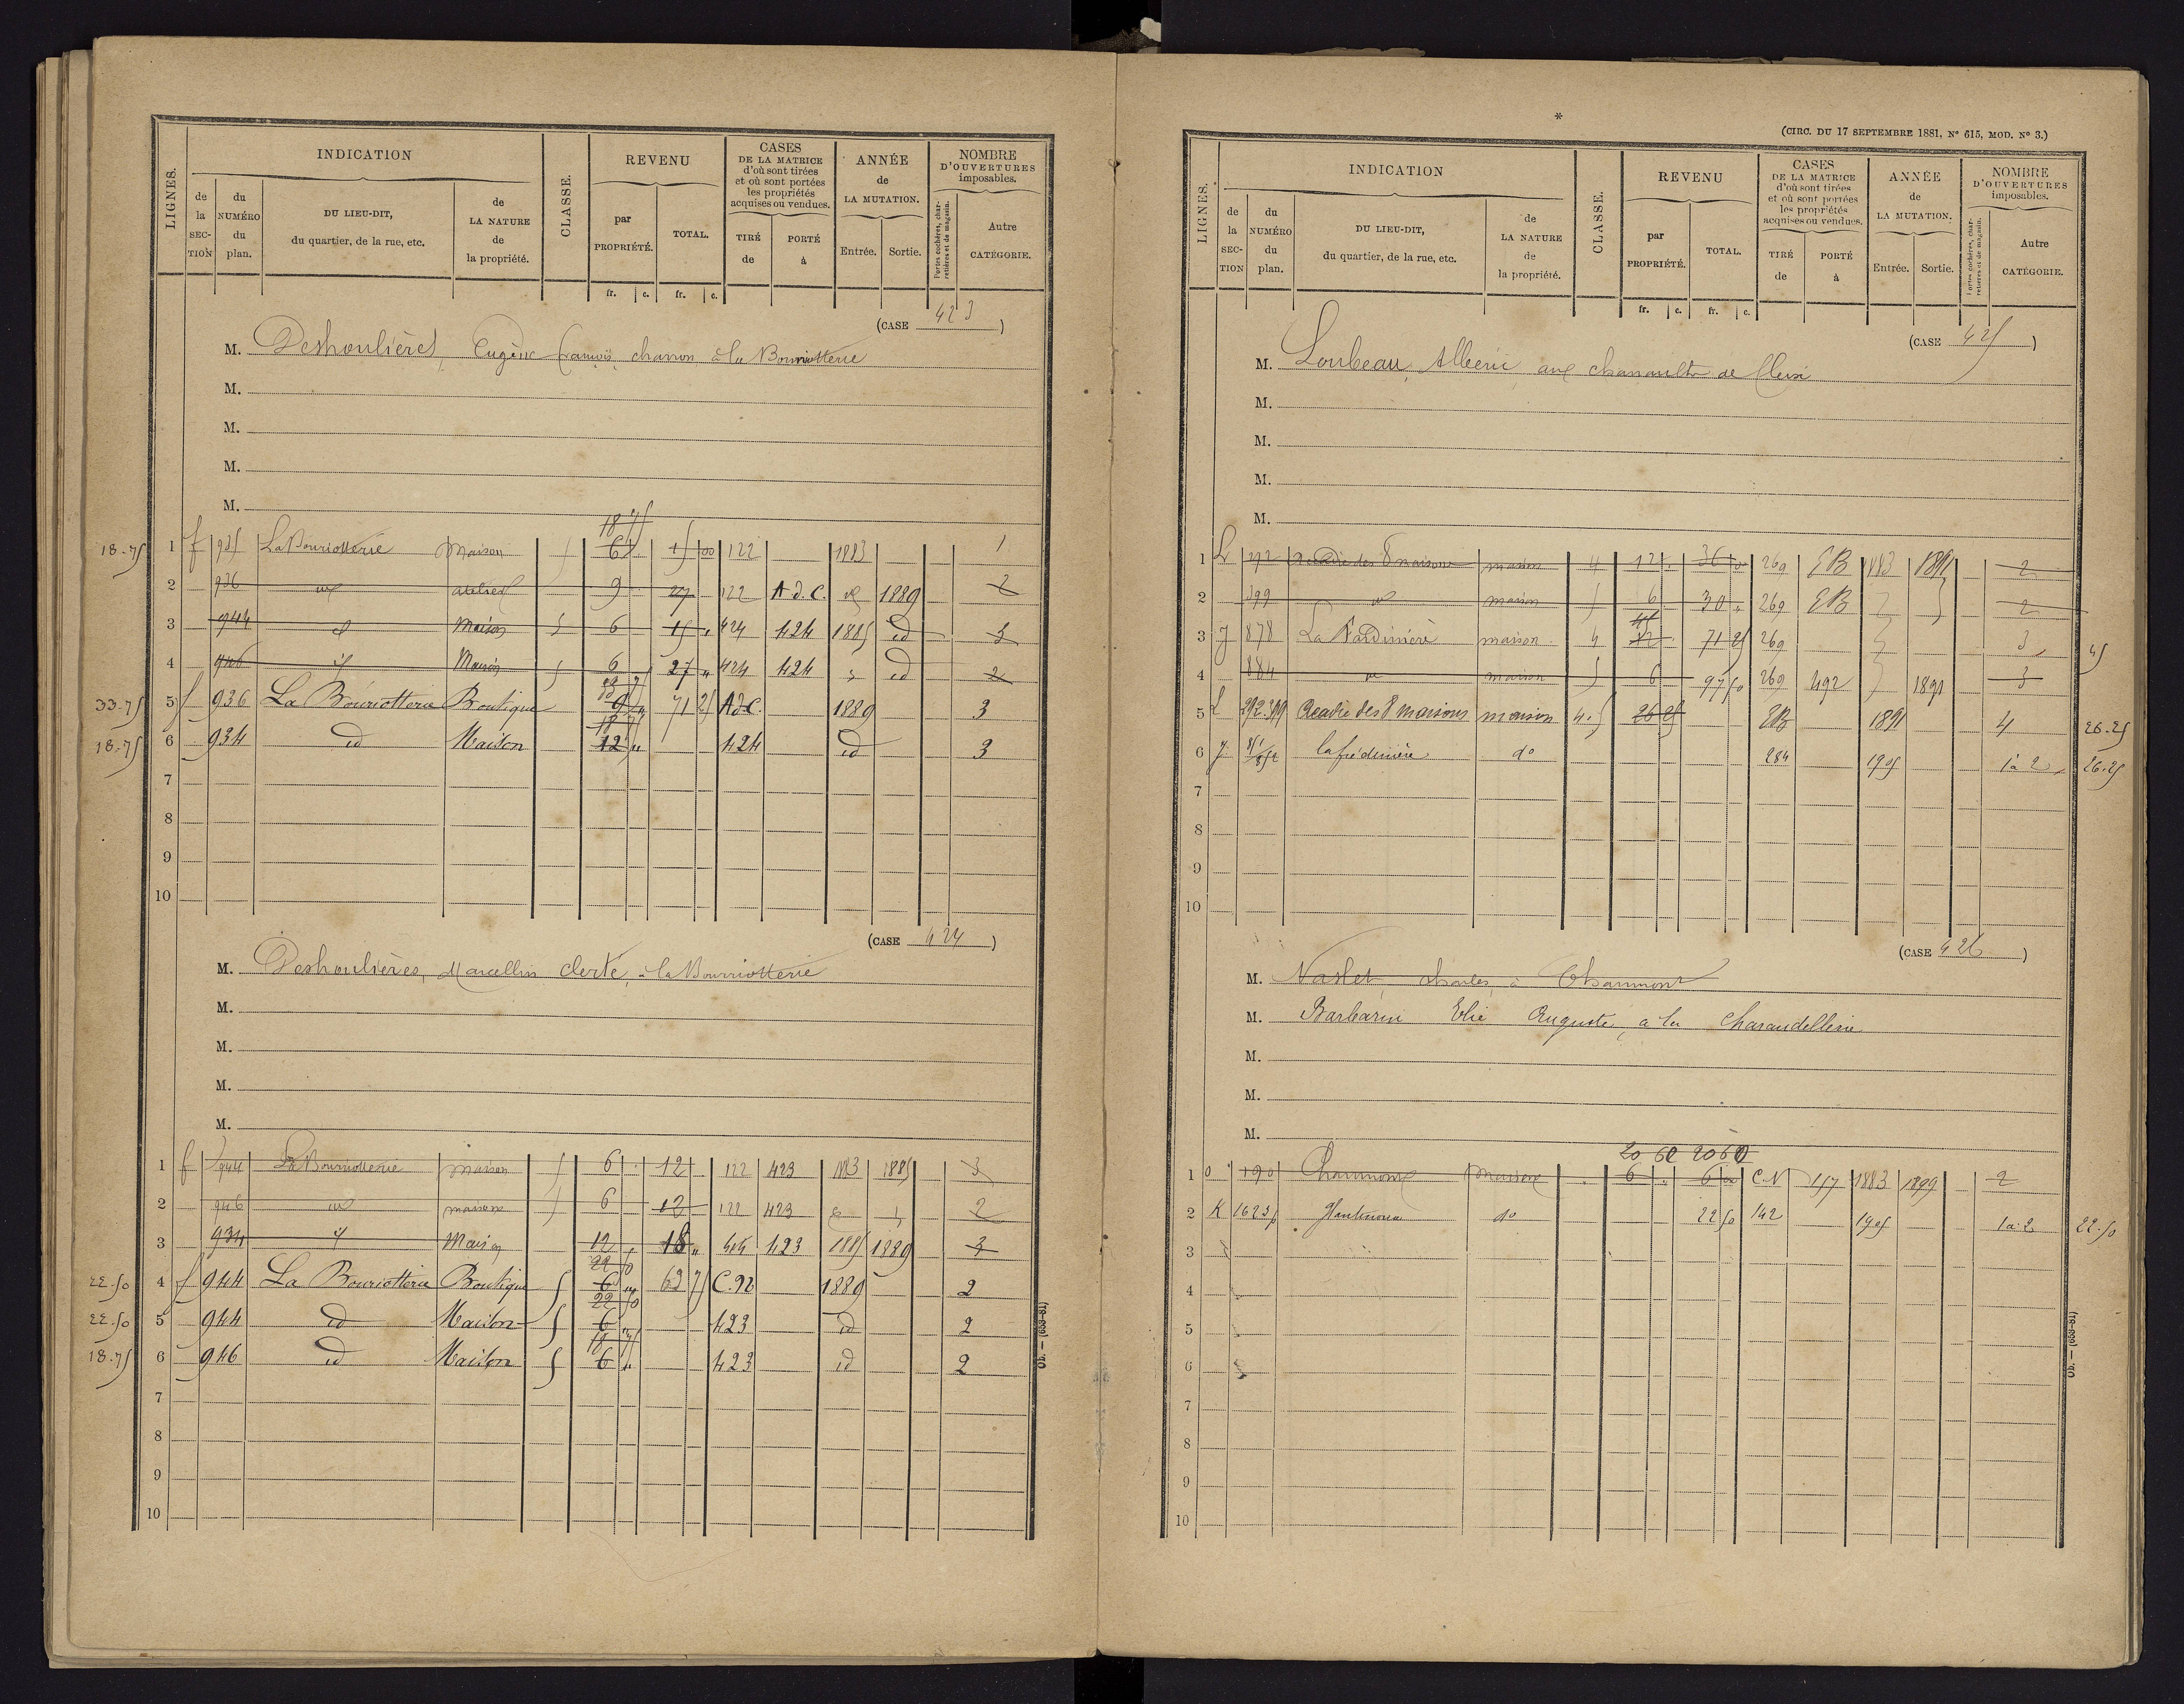 LIGNES.
INDICATION
de la SECTION
du NUMÉRO du plan.
DU LIEU-DIT, du quartier, de la rue, etc.
de LA NATURE de la propriété.
CLASSE.
REVENU
par PROPRIÉTÉ.
TOTAL.
fr. c. fr. c.
CASES DE LA MATRICE d'où sont tirées et où sont portées les propriétés acquises ou vendues.
TIRÉ de
PORTÉ à
ANNÉE de LA MUTATION.
Entrée.
Sortie.
NOMBRE D'OUVERTURES imposables.
Portes cochères, charretières et de magasin.
Autre CATÉGORIE.
(CASE 423)
M. Deshoulières, Eugène françois charron à la Bourriotterie
M.
M.
M.
M.
18-75 1 f 935 La Bouriotterie Maison 5 18 75 6 15 00 122 1883 1
2 936 id atelier 9 27 122 A.d.C. id 1889 2
3 944 id Maison 5 6 15 " 424 424 1885 id 3
4 946 id Maison 5 6 27 " 424 424 id 2
33-75 5 f 936 La Bouriotterie Boutique 9 " 71 25 AdC. 1889 3
18-75 6 934 id Maison 18 75 12 " 424 id 3
7
8
9
10
(CASE 424)
M. Deshoulières, Marcellin Clerté, à la Bourriotterie
M.
M.
M.
M.
1 f 944 La Bourriotterie maison 5 6 12 122 423 1883 1885 3
2 946 id maison 5 6 12 122 423 2
3 934 id Maison 12 " 18 " 423 1885 1889 3
22.50 4 f 944 La Bouriotterie Boutique 5 22 50 6 " 63 75 C.92 1889 2
22.50 5 944 id Maison 5 22 50 6 " 423 id 2
18-75 6 946 id Maison 5 18 75 6 " 423 id 2
7
8
9
10
Ob. — (653-81)
*
(CIRC. DU 17 SEPTEMBRE 1881, N° 615, MOD. N° 3.)
LIGNES.
INDICATION
de la SECTION
du NUMÉRO du plan.
DU LIEU-DIT, du quartier, de la rue, etc.
de LA NATURE de la propriété.
CLASSE.
REVENU
par PROPRIÉTÉ.
TOTAL.
fr. c. fr. c.
CASES DE LA MATRICE d'où sont tirées et où sont portées les propriétés acquises ou vendues.
TIRÉ de
PORTÉ à
ANNÉE de LA MUTATION.
Entrée.
Sortie.
NOMBRE D'OUVERTURES imposables.
Portes cochères, charretières et de magasin.
Autre CATÉGORIE.
(CASE 425)
M. Loubeau, Alberic aux chanaults de
M.
M.
M.
M.
1 L 292 Acadie des 8 maisons maison 4 12 36 00 269 EB 1883 1891 2
2 399 id maison 5 6 30 " 269 EB 2
3 J 878 La maison 4 45 12 71 25 269 3 45
4 884 id maison 5 6 97 50 269 492 1891 3
5 L 292.399 Acadie des 8 maisons maison 4.5 26 25 EB 1891 4 26-25
6 J. do 284 1905 1 à 2 26.25
7
8
9
10
(CASE 426)
M. Naslet, charles, à Chaumont
M. Barbarin Elie Auguste, à la Charaudellerie
M.
M.
M.
20 60 20 60
1 O 190 Chaumont Maison 6 " 6 00 C.N 157 1883 1899 2
2 K 1625 do 22 50 142 1905 1 à 2 22.50
3
4
5
6
7
8
9
10
Ob. — (653-81)